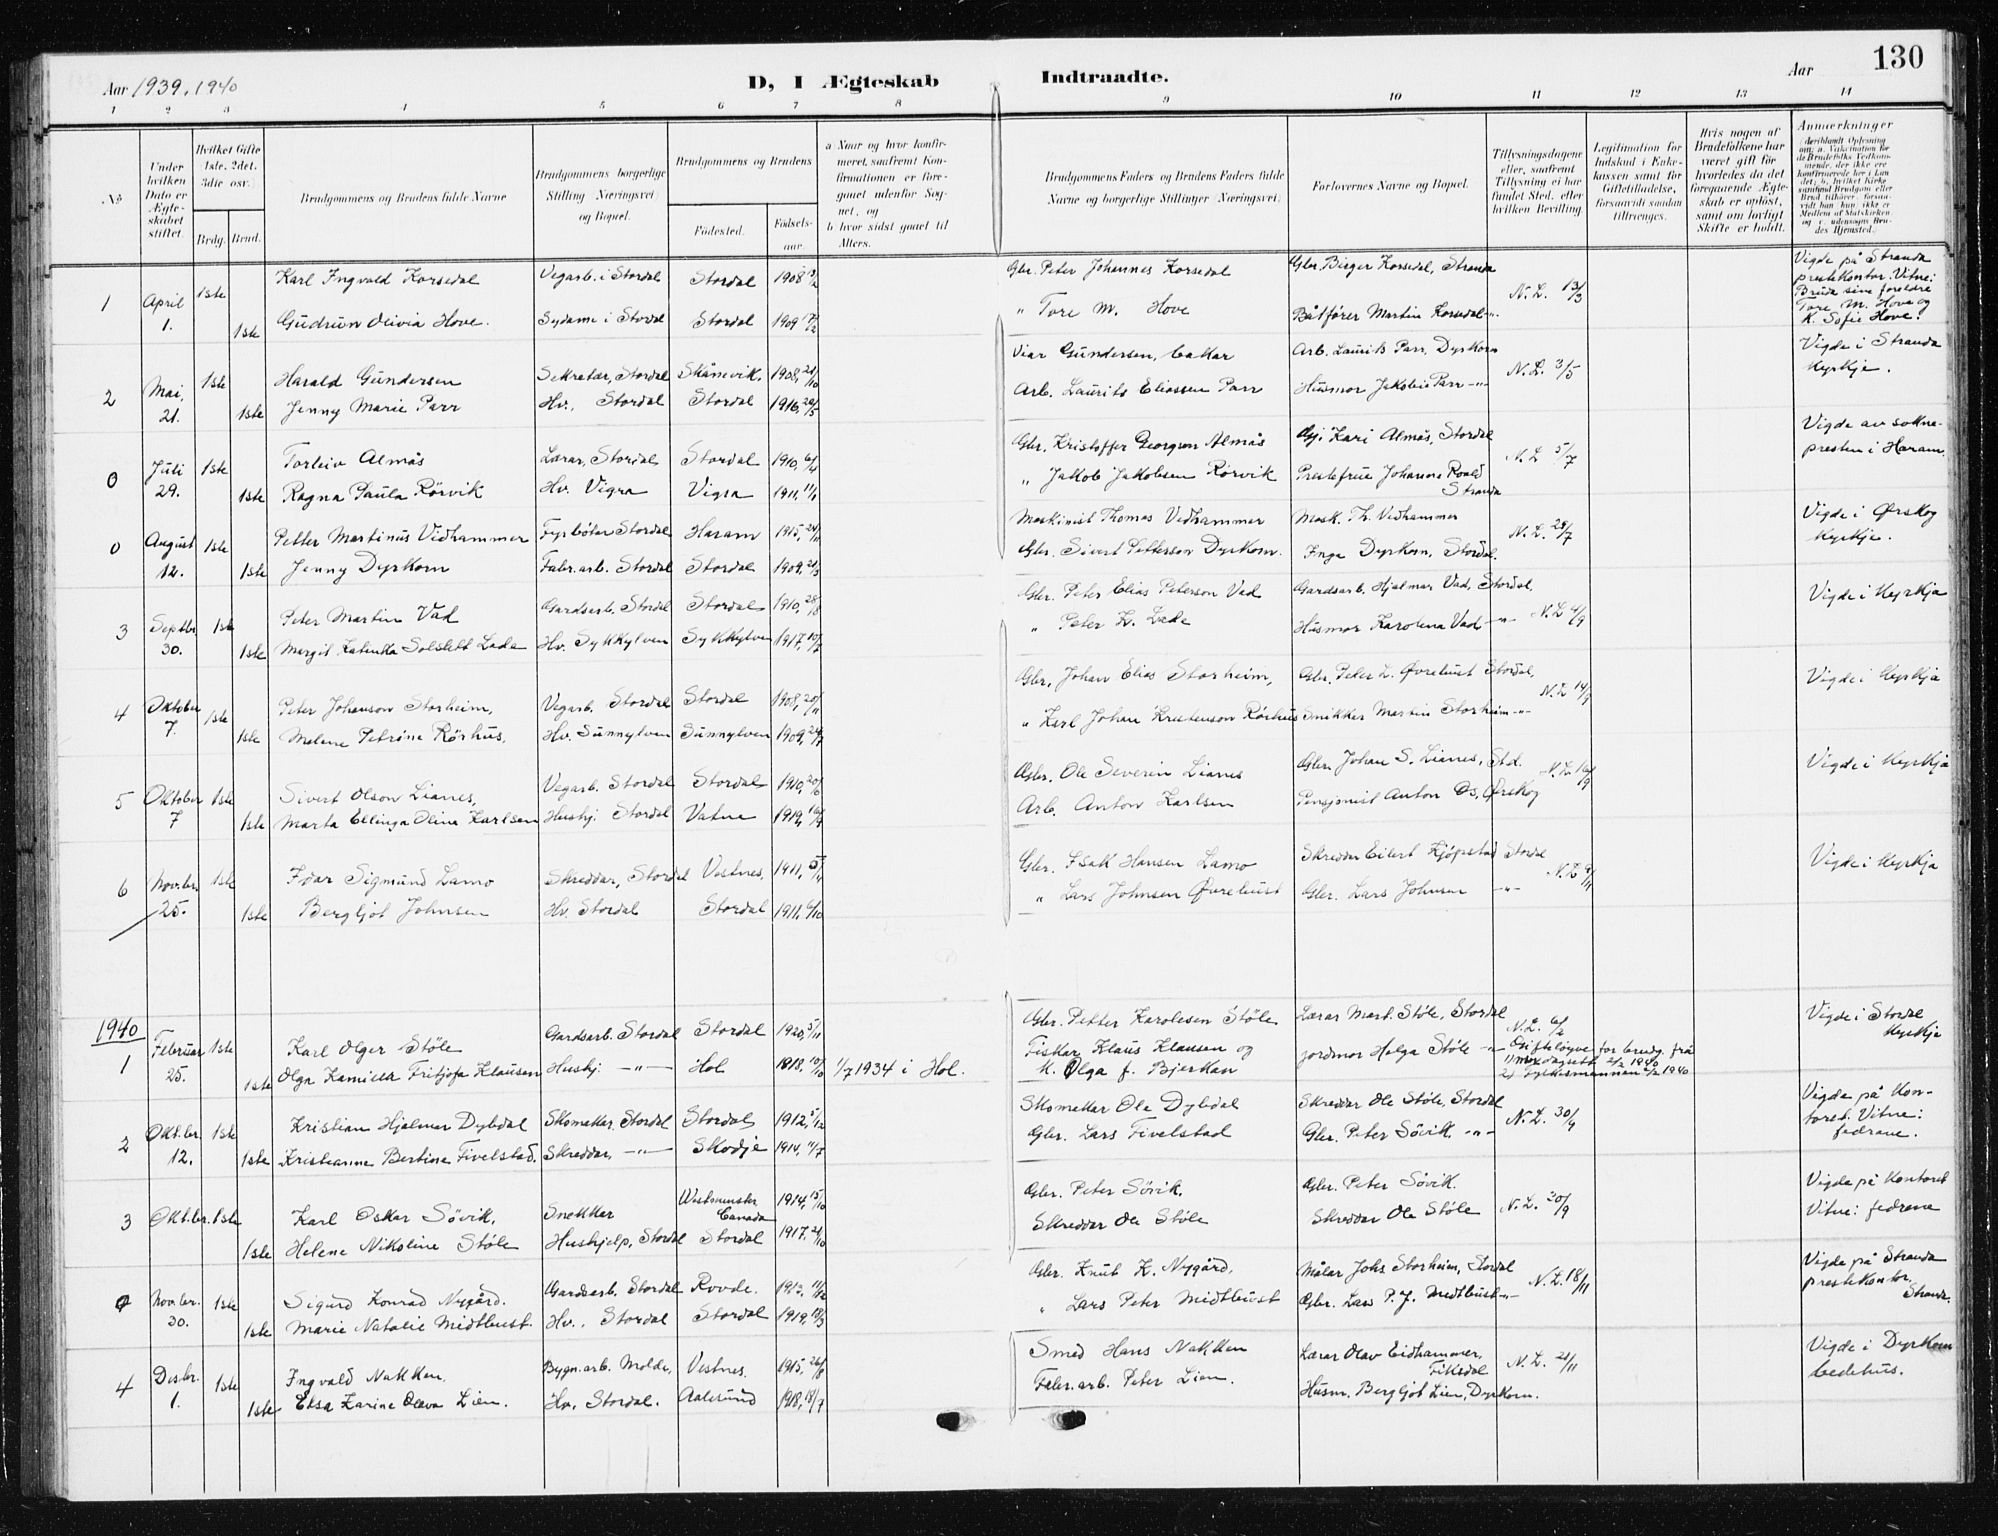 130
Aar 1939, 1940
D, I Ægteskab Indtraadte.
Aar
1 2 3 4 5 6 7 8 9 10 11 12 13 14
No.
Under hvilken Dato er Ægteskabet stiftet.
Hvilket Gifte 1ste, 2det, 3die osv.
Brdg. Brud.
Brudgommens og Brudens fulde Navne
Brudgommens borgerlige Stilling Næringsvei og Bopæl.
Brudgommens og Brudens
Fødested.
Fødselsaar.
a Naar og hvor konfirmeret, saafremt Konfirmationen er foregaaet udenfor Sognet, og
b hvor sidst gaaet til Alters.
Brudgommens Faders og Brudens Faders fulde Navne og borgerlige Stillinger (Næringsvei)
Forlovernes Navne og Bopæl.
Tillysningsdagene eller, saafremt Tillysning ei har fundet Sted, efter hvilken Bevilling.
Legitimation for Indskud i Enkekassen samt for Giftetilladelse, forsaavidt saadan tiltrænges.
Hvis nogen af Brudefolkene har været gift før hvorledes da det foregaaende Ægteskab er opløst, samt om lovligt Skifte er holdt.
Anmærkninger
1 April 1. 1ste Karl Ingvald Korsedal Vegarb. i Stordal Stordal 1908 Gbr. Peter Johannes Korsedal Gbr. Birger Korsedal, Stranda N.L. 13/3 Vigde på Stranda prestekontor. Vitne: Bruda sine foreldre Tore M. Hove og K. Sofie Hove.
1ste Gudrun Olivia Hove. Sydame i Stordal Stordal 1909 " Tore M. Hove Båtfører Martin Korsedal -"-
2 Mai, 21. 1ste Harald Gundersen Sekretær, Stordal Skånevik. 1908, 21/10 Gundersen, Arb. Laurits Parr, Dyrkorn N.L. 3/5 Vigde i Stranda kyrkje.
1ste Jenny Marie Parr Hv. Stordal Stordal 1916, 20/5 Arb. Laurits Eliassen Parr Husmor Jakobie Parr -"-
0 Juli 29. 1ste Torleiv Almås Lærar, Stordal Stordal 1910, 6/4 Gbr. Kristoffer Georgson Almås Kari Almås, Stordal N.L. 5/7 Vigde av sokne-presten i Haram.
1ste Ragna Paula Rørvik Hv. Vigra Vigra 1911, 11/1 " Jakob Jakobsen Rørvik Prestefrue Johanne Roald Stranda
0 August 12. 1ste Petter Martinus Vidhammer Fyrbøtar Stordal Haram 1915, 24/11 Maskinist Thomas Vedhammer Mask. Th. Vedhammer N.L. 28/7 Vigde i Ørskog kyrkje.
1ste Jenny Dyrkorn Fabr.arb. Stordal Stordal 1909, 21/3 Gbr. Sivert Petterson Dyrkorn. Inga Dyrkorn, Stordal.
3 Septbr. 30. 1ste Peter Martin Vad Gardsarb. Stordal Stordal 1910, 28/8 Gbr. Peter Elias Peterson Vad Gardsarb. Hjalmar Vad, Stordal, N.L. 4/9 Vigde i kyrkja
1ste Margit Katinka Solslett Lade Hv. Sykkylven Sykkylven 1917, 10/7 " Peter K. Lade Husmor Karolena Vad -"-
4 Oktober 7. 1ste Peter Johanson Storheim, Vegarb. Stordal Stordal 1908, 20/11 Gbr. Johan Elias Storheim, Gbr. Peter L. Øvrebust Stordal, N.L. 14/9 Vigde i kyrkja
1ste Malene Petrine Rørhus, Hv. Sunnylven Sunnylven 1909, 24/7 " Karl Johan Kristenson Rørhus Snikkar Martin Storheim -"-
5 Oktober 7 1ste Sivert Olson Lianes, Vegarb. Stordal Stordal 1910, 20/6 Gbr. Ole Severin Lianes Gbr. Johan S. Lianes, Std. N.L. 16/9 Vigde i kyrkja
1ste Marta Ellinga Oline Karlsen Hushj. Stordal Vatne 1919, 16/9 Arb. Anton Karlsen Pensjonist Anton Os, Ørskog
6 Nov.br. 25. 1ste Idar Sigmund Lamo Skreddar, Stordal Vestnes, 1911, Gbr. Isak Hansen Lamo Skreddar Eilert Kjøpstad Stordal N.L. 9/11 Vigde i kyrkja
1ste Bergljot Johnsen Hv. Stordal Stordal 1911, 6/10 " Lars Johnsen Øvrebust Gbr. Lars Johnsen -"-
1940
1 Februar 25. 1ste Karl Olger Støle Gardsarb. Stordal Stordal 1920, 5/11 Gbr. Petter Karolesen Støle Lærar Mart. Støle, Stordal N.L. 6/2 Vigde i Stordal kyrkja
1ste Olga Kamilla Fritjofa Klausen Hushj. -"- Hol 1918, 10/10 1/7 1934 i Hol. Fiskar Klaus Klausen og K. Olga f. Bjerkan Jordmor Helga Støle -"- Gifteløyve for brudg. frå 2) Fylkesmannen 2/2 1940
2 Okt.br. 12. 1ste Kristian Hjalmar Dybdal Skomakar Stordal Stordal 1912, 5/12 Skomakar Ole Dybdal Skreddar Ole Støle, Stordal N.L. 30/9 Vigde på kontoret. Vitne: fedrane.
1ste Kristianna Bertine Fivelstad. Skreddar, -"- Skodje 1914, 11/7 Gbr. Lars Fivelstad Gbr. Peter Søvik -"-
3 Okt.br. 1ste Karl Oskar Søvik, Snekkar Westminster Canada 1914, 15/10 Gbr. Peter Søvik, Gbr. Peter Søvik. N.L. 30/9 Vigde på kontoret Vitne: fedrane
1ste Helene Nikoline Støle Hushjelp, Stordal Stordal 1917, 21/10 Skreddar Ole Støle Skreddar Ole Støle
0 Nov.br. 30. 1ste Sigurd Konrad Nygård. Gardsarb. Stordal Rovde. 1913, 11/12 Gbr. Knut K. Nygård, Målar Johs Storheim, Stordal N.L. 18/11 Vigde på Stranda prestekontor, Stranda.
1ste Marie Natalie Midtbust. Hv. Stordal Stordal 1919, 18/3 " Lars Peter Midtbust Gbr. Lars P.J. Midtbust -"-
4 Desbr. 1. 1ste Ingvald Nakken, Bygn.arb. Molde, Vestnes. 1915, 26/8 Smed Hans Nakken Lærar Olav Eidhammer, Fiksdal N.L. 21/11 Vigde i Dyrkorn bedehus.
1ste Elsa Karine Olava Lien. Hv. Stordal. Aalesund 1918, 18/7 Fabr.arb. Peter Lien. Husm. Bergljot Lien, Dyrkorn.